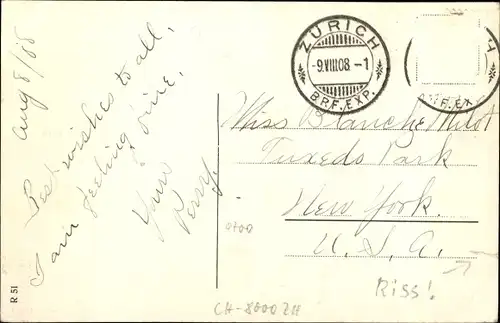 Aug 8/08
Best wishes to all,
I am feeling fine.
Yours
Percy.
R 51
ZÜRICH
-9.VIII.08.-1
BRF. EXP.
F. EX
Miss Blanche
Tuxedo Park
New York.
U.S.A.
9700
Riss!
CH-8000 ZH